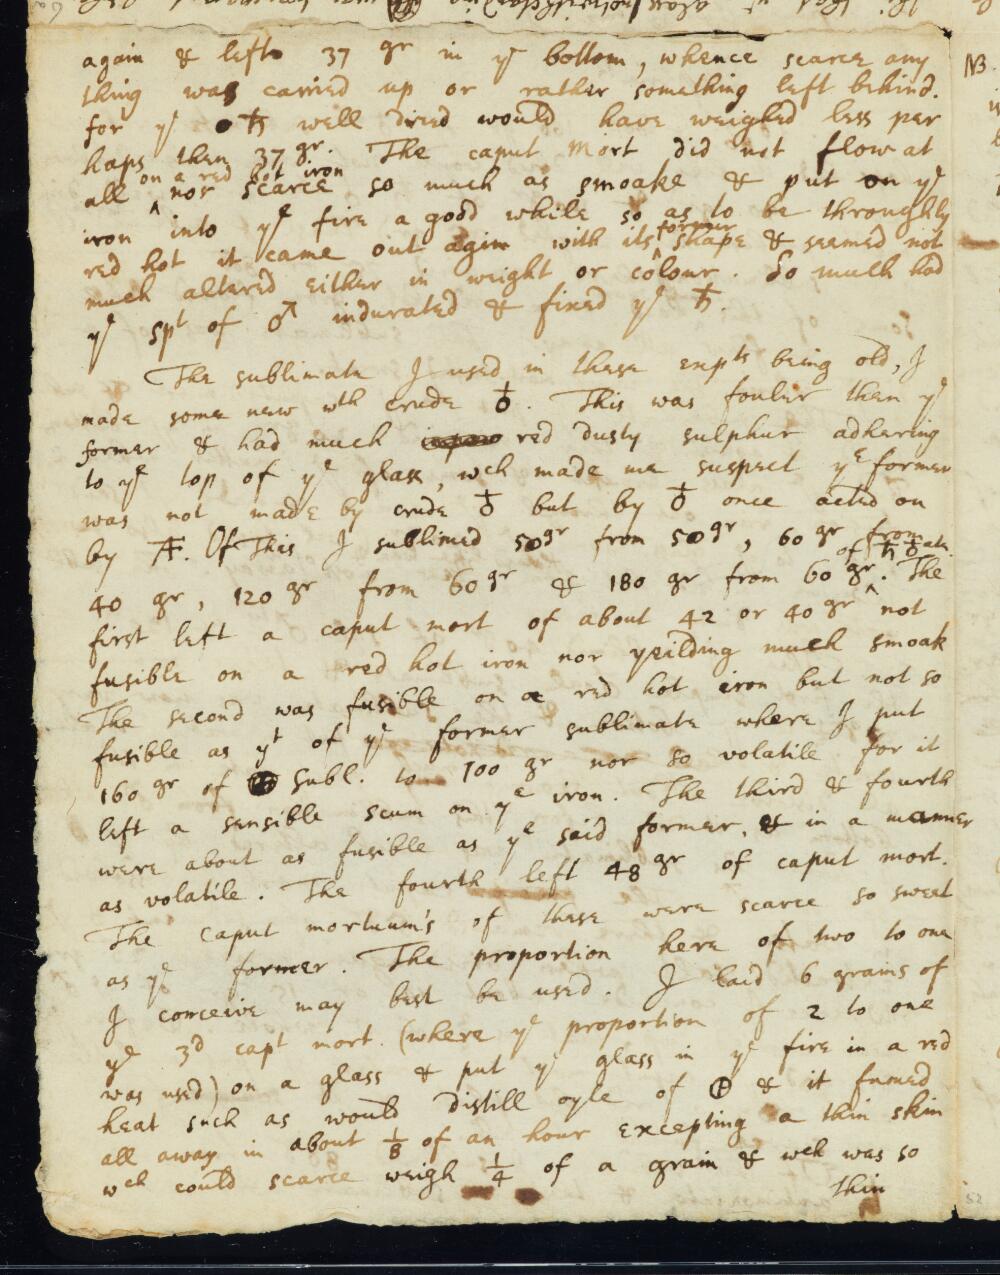 again & left 37 gr in ye bottom, whence scarce any
thing was carried up or rather something left behind.
for ye ♄ well dried would have weighed less per
haps then 37 gr. The caput mort did not flow at
all on a red hot iron nor scarce so much as smoake & put on ye
iron into ye fire a good while so as to be throughly
red hot it came out again with its former shape & seemed not
much altered either in weight or colour. So much had
ye spt of ♂ indurated & fixed ye ♄.
The sublimate I used in these expts being old, I
made some new wth crude ♁. This was fouler then ye
former & had much red dusty sulphur adhering
to ye top of ye glass, wch made me suspect ye former
was not made by crude ♁ but by ♁ once acted on
by Æ. Of This I sublimed 50gr from 50gr, 60 gr from
40 gr, 120 gr from 60gr & 180 gr from 60gr of ♄ ♁. The
first left a caput mort of about 42 or 40gr not
fusible on a red hot iron nor yeilding much smoak
The second was fusible on a red hot iron but not so
fusible as yt of ye former sublimate where I put
160 gr of Subl. to 100 gr nor so volatile for it
left a sensible scum on ye iron. The third & fourth
were about as fusible as ye said former, & in a manner
as volatile. The fourth left 48gr of caput mort.
The caput mortuum's of these were scarce so sweet
as ye former. The proportion here of two to one
I conceive may best be used. I laid 6 grains of
ye 3d capt mort. (where ye proportion of 2 to one
was used) on a glass & put ye glass in ye fire in a red
heat such as would distill oyle of 🜨 & it fumed
all away in about 1/8 of an hour excepting a thin skin
wch could scarce weigh 1/4 of a grain & wch was so
thin
NB.